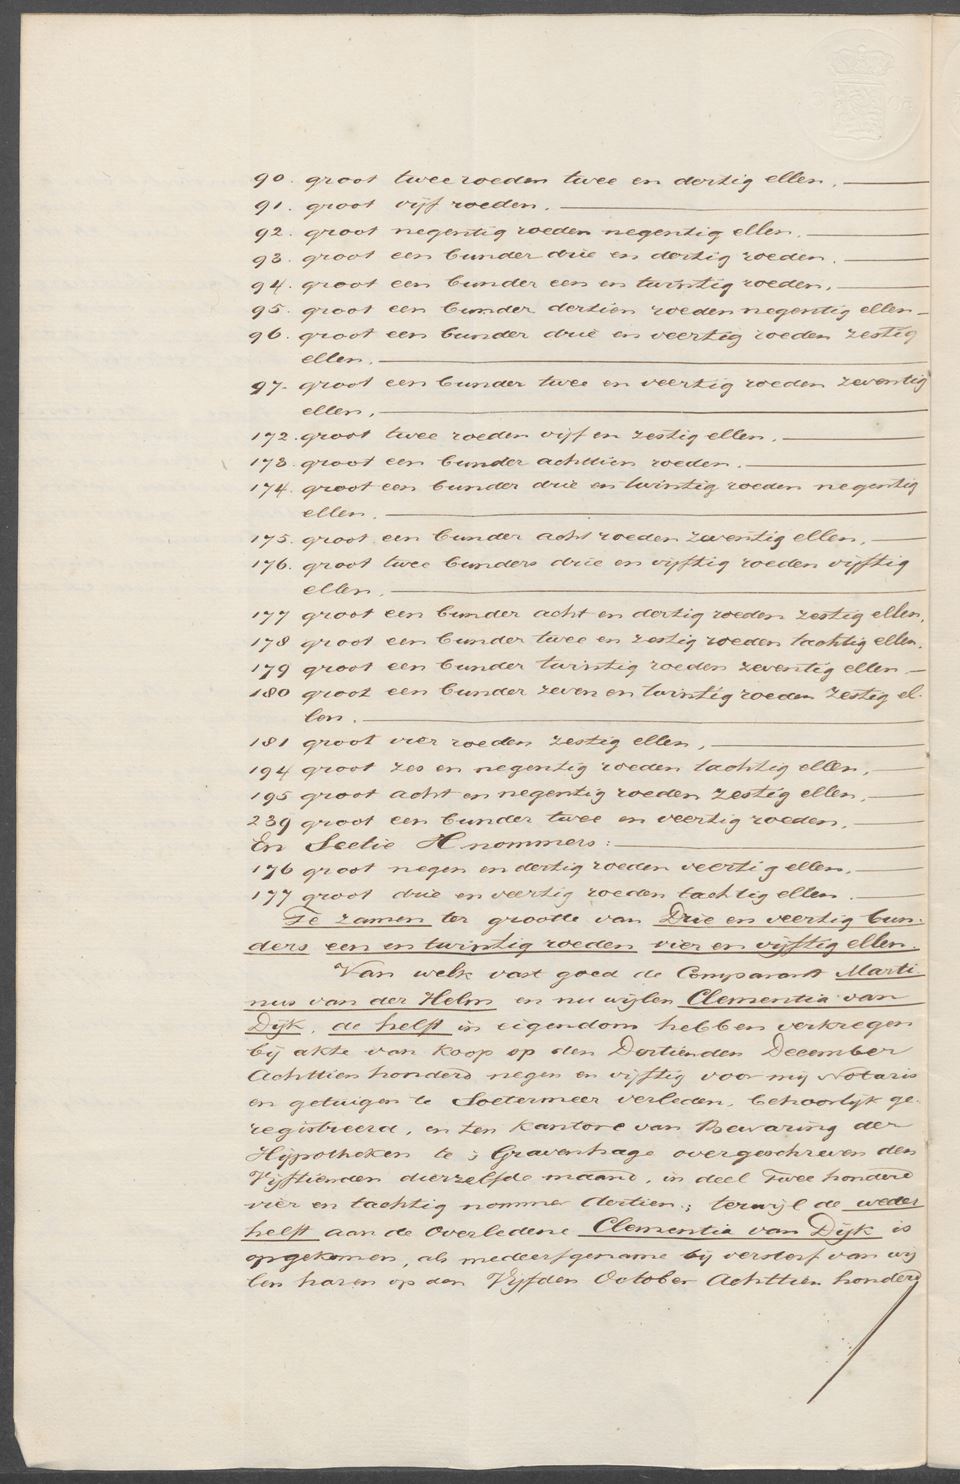 90. groot twee roeden twee en dertig ellen.
91. groot vijf roeden.
92. groot negentig roeden negentig ellen.
93. groot een bunder drie en dertig roeden.
94. groot een bunder een en twintig roeden.
95. groot een bunder dertien roeden negentig ellen
96. groot een bunder drie en veertig roeden zestig
ellen.
97. groot een bunder twee en veertig roeden zeventig
ellen.
172. groot twee roeden vijf en zestig ellen.
173. groot een bunder achttien roeden.
174. groot een bunder drie en twintig roeden negentig
ellen.
175. groot een bunder acht roeden zeventig ellen.
176. groot twee bunders drie en vijftig roeden vijftig
ellen.
177 groot een bunder acht en dertig roeden zestig ellen.
178 groot een bunder twee en zestig roeden tachtig ellen.
179 groot een bunder twintig roeden zeventig ellen
180 groot een bunder zeven en twintig roeden zestig el-
len.
181 groot vier roeden zestig ellen,
194 groot zes en negentig roeden tachtig ellen.
195 groot acht en negentig roeden zestig ellen.
239 groot een bunder twee en veertig roeden.
En Sectie H nommers:
176 groot negen en dertig roeden veertig ellen.
177 groot drie en veertig roeden tachtig ellen.
Te zamen ter grootte van Drie en veertig bun-
ders een en twintig roeden vier en vijftig ellen.
Van welk vast goed de Comparant Marti
nus van der Helm en nu wijlen Clementia van
Dijk, de helft in eigendom hebben verkregen
bij akte van koop op den Dertienden December
Achttien honderd negen en vijftig voor mij Notaris
en getuigen te Soetermeer verleden, behoorlijk ge-
registreerd, en ten kantore van Bewaring der
Hijpotheken te 's Gravenhage overgeschreven den
Vijftienden dierzelfde maand, in deel Twee honderd
vier en tachtig nommer dertien; terwijl de weder
helft aan de overledene Clementia van Dijk is
opgekomen, als medeerfgename bij versterf van wij
len haren op den Vijfden October Achttien honderd